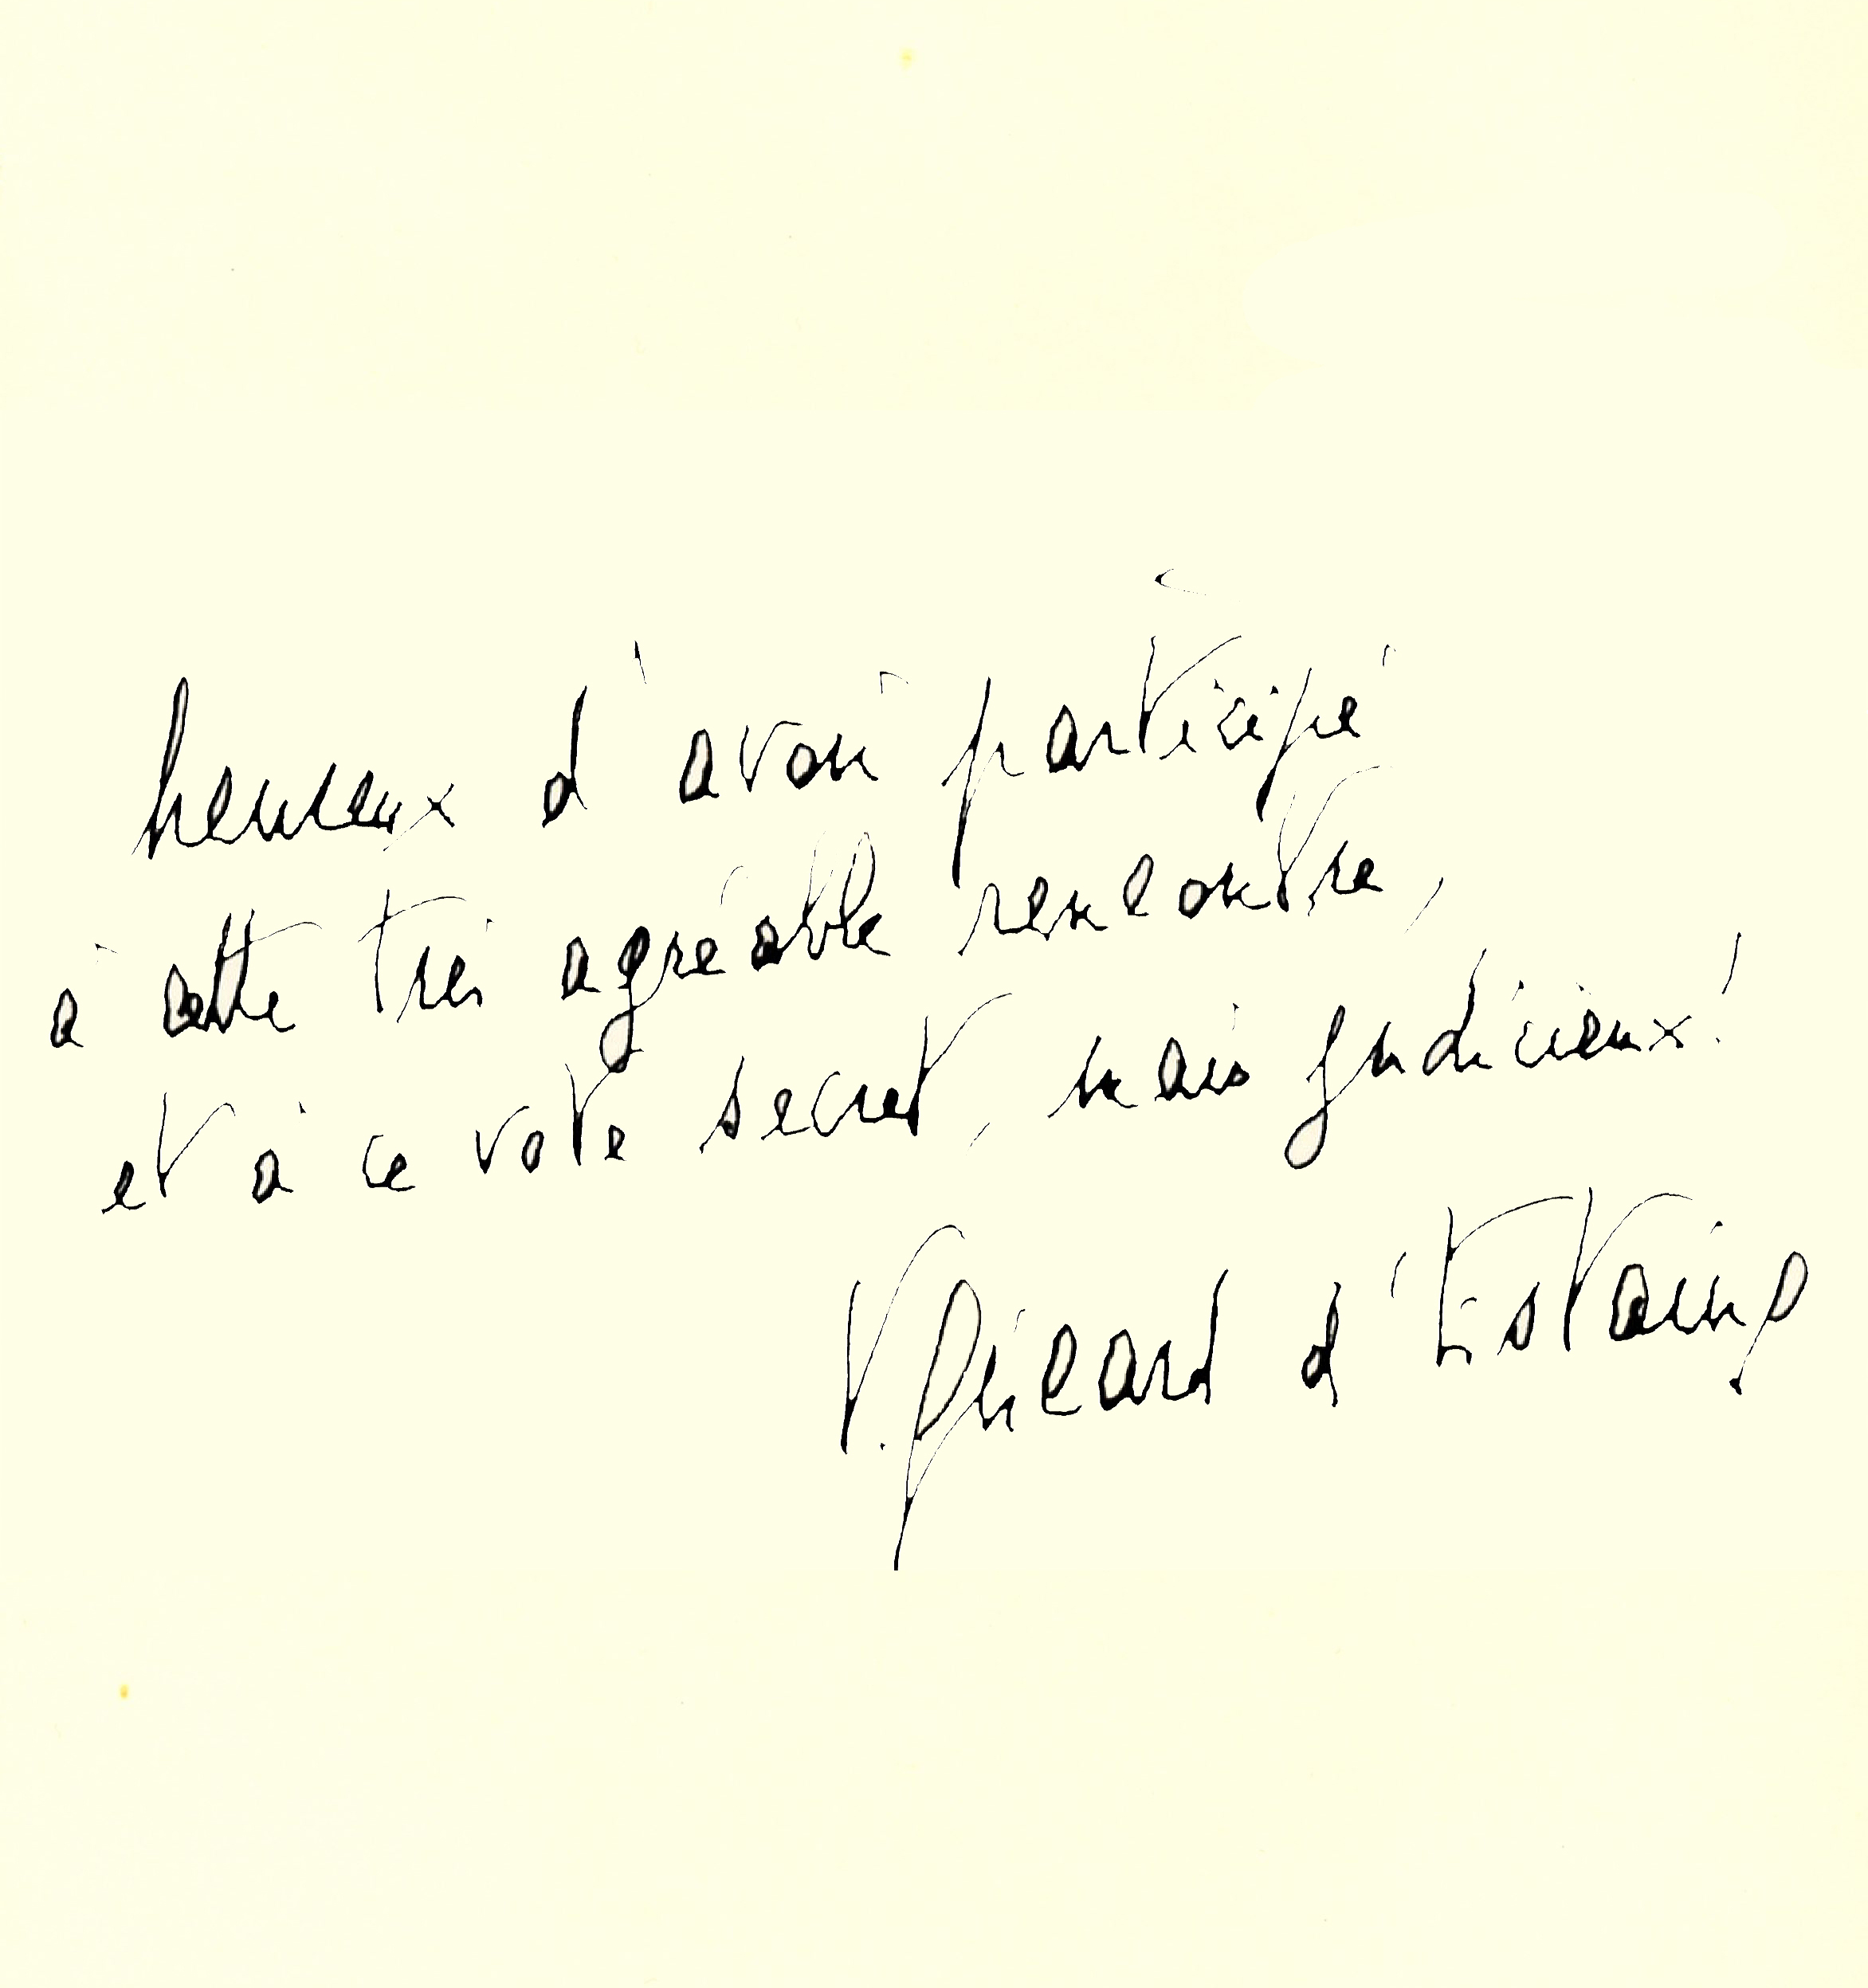 heureux d'avoir participé
à cette très agréable rencontre,
et à ce vote secret, mais judicieux!
V. Giscard d'Estaing